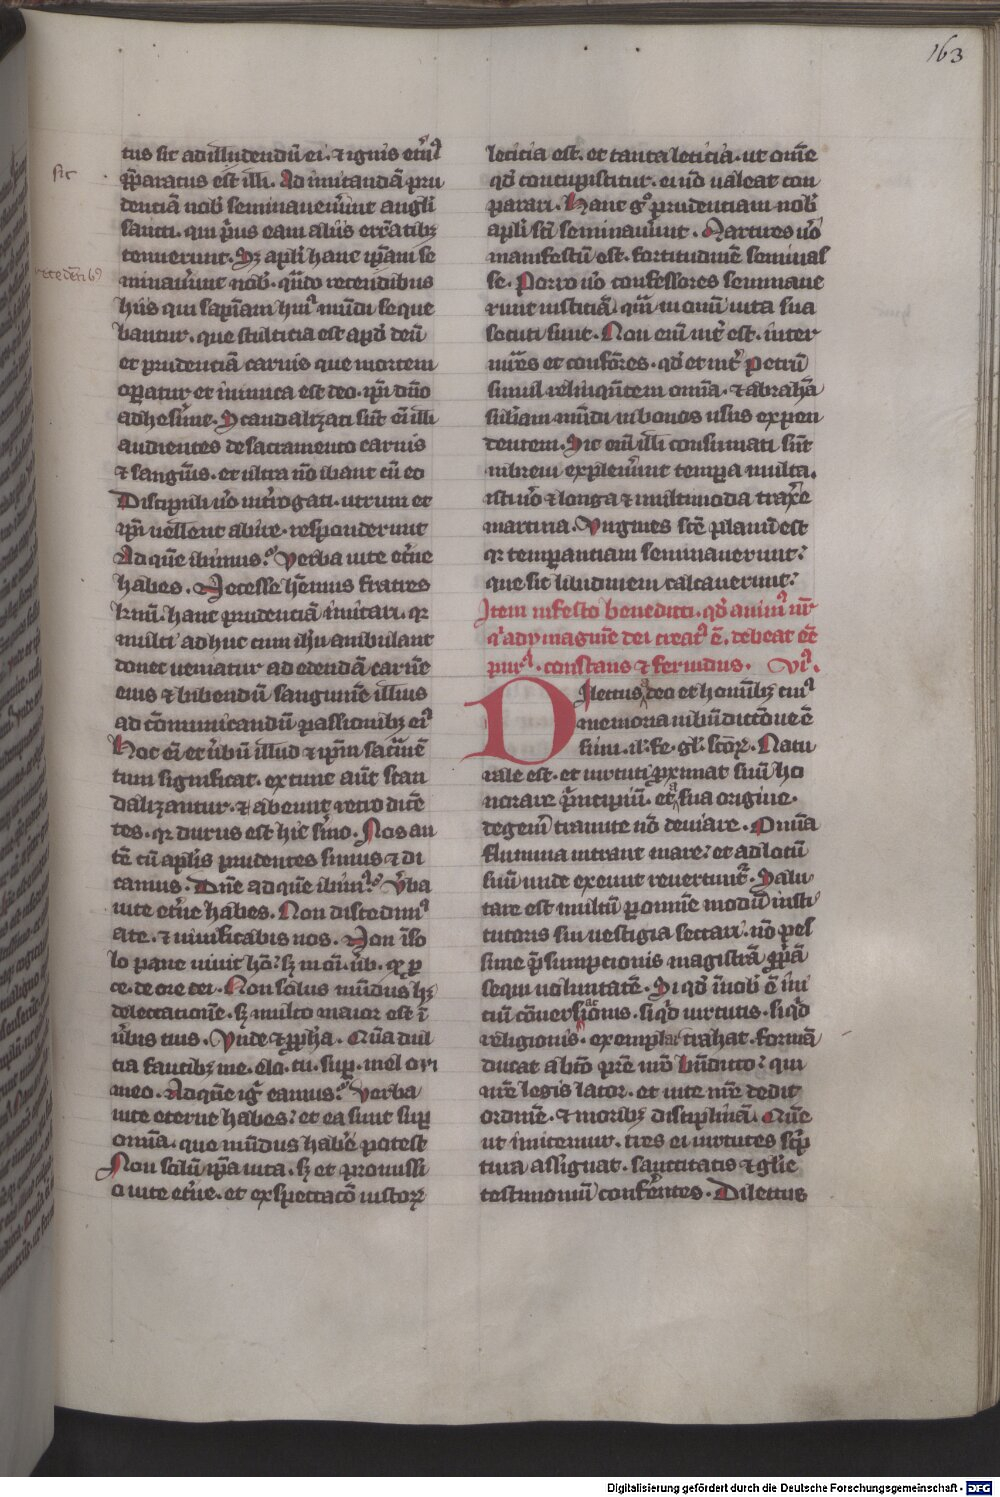 163
sic
tus sit ad illudendū ei · ⁊ ignis et̄nꝰ
p̄paratus est illi · Ad imitandā pru
dentiā nob̄ seminaverūnt angli
sancti · qui p̄us eam aliis err̄atibꝫ
tenuerunt · Sꝫ apl̄i hanc ip̄am se
minaver̄nt nob̄ · qn̄do recedentibus
hiis qui sapiam huiꝰ mūdi seque
bantur · que stultitia est apd̄ deū
et prudentiā carnis que mortem
op̄atur et inimica est deo · ip̄i dn̄o
adheser̄nt · Scandalizati sūt em̄ illi
audientes de sacramento carnis
⁊ sanguīs · et ultra nō ibant cū eo
Discipuli v̄o int̄rogati · utrum et
ip̄i vellent abire · responderunt
Ad quē ibimus · Verba vite et̄ne
habes · Necesse hēmus fratres
kr̄mi · hanc prudentiā imitari · qꝛ
multi adhuc cum ih̄u ambulant
donec veniatur ad edendā carnē
eius ⁊ bibendū sanguinē illius
ad cōmunicandū passionibꝫ eiꝰ
Hoc em̄ et v̄bū illud ⁊ ip̄m sac̄mē
tum significat · ex tunc aūt scan
dalizantur · ⁊ abeunt retro dicē
tes · qꝛ durus est hic s̄mo · Nos au
tē cū apl̄is prudentes simus ⁊ di
camus · Dn̄e ad quē ibimꝰ · V̄ba
vite et̄ne habes · Non discedimꝰ
a te · ⁊ vivificabis nos · Non ī so
lo pane vivit hō · sꝫ in om̄i v̄b · qꝫ p
ce · de ore dei · Non solus mūdus hꝫ
delectationē · sꝫ multo maior est ī
v̄bis tuis · Unde ⁊ p̄ph̄a · Quā dul
cia faucibꝫ me · elo · tu · sup̄ · mel ori
meo · Ad quē iḡ eamus · Verba
vite eterne habes · et ea sunt sup̄
omīa · que mūdus habē potest
Non solū ip̄a vita · sꝫ et promissi
o vite et̄ne · et exspectacō iustoꝝ
leticia est · et tanta leticia · ut omē
qd̄ concupiscitur · ei nō valeat con
parari · Hanc g̊ prudentiam nob̄
apl̄i sc̄i seminaver̄nt · Martires v̄o
manifestū est · fortitudinē seminas
se · Porro v̄o confessores seminave
runt iusticiā · quā in omī vita sua
secuti sunt · Non em̄ int̄ est · inter
mr̄es et confōres · qd̄ et int̄ petrū
simul relinquētem omīa · ⁊ abrahā
subiam mūdi in bonos usus expen
dentem · Sic em̄ illi consumati sūt
in brevi expleverūnt tempora multa ·
isti v̄o ⁊ longa ⁊ multimoda trax̄e
martiria · Virgines sc̄e planū est
qꝛ temperantiam seminaverunt ·
que sic libidinem calcaverunt ·
Item in festo benedicti · qd̄ animꝰ nr̄
q̄ ad ymaginē dei creatꝰ ē · debeat eē
purꝰ · constans ⁊ fervidus · VIꝰ ·
Dilectus deo et hominibꝫ cuiꝰ
memoria in bn̄dictōne ē
simi · il · fe · gl · scōꝝ · Natu
rale est · et virtuti ꝓximat suū ho
norare p̄ncipiū · et a sua origine ·
degen̄i tramite nō deviare · Omīa
flumina intrant mare · et ad locū
suū unde exeunt revertunt̄ · Salu
tare est multū p omnē modū insti
tutoris sui vestigia sectari · nō pes
sime p̄sumptionis magistrā ꝓp̄ā
sequi voluntatē · Si qd̄ in nob̄ ē ini
tiū cōversacionis · si qd̄ virtutis · si qd̄
religionis · exemplar trahat · formā
ducat a bt̄o pr̄e nr̄o bn̄dicto · qui
nr̄e legis lator · et vite nr̄e dedit
ordinē · ⁊ moribꝫ disciplinā · Quē
ut imitemur · tres ei virtutes scp̄
tura assignat · sanctitatis ⁊ gl̄ie
testimoniū conferentes · Dilectus